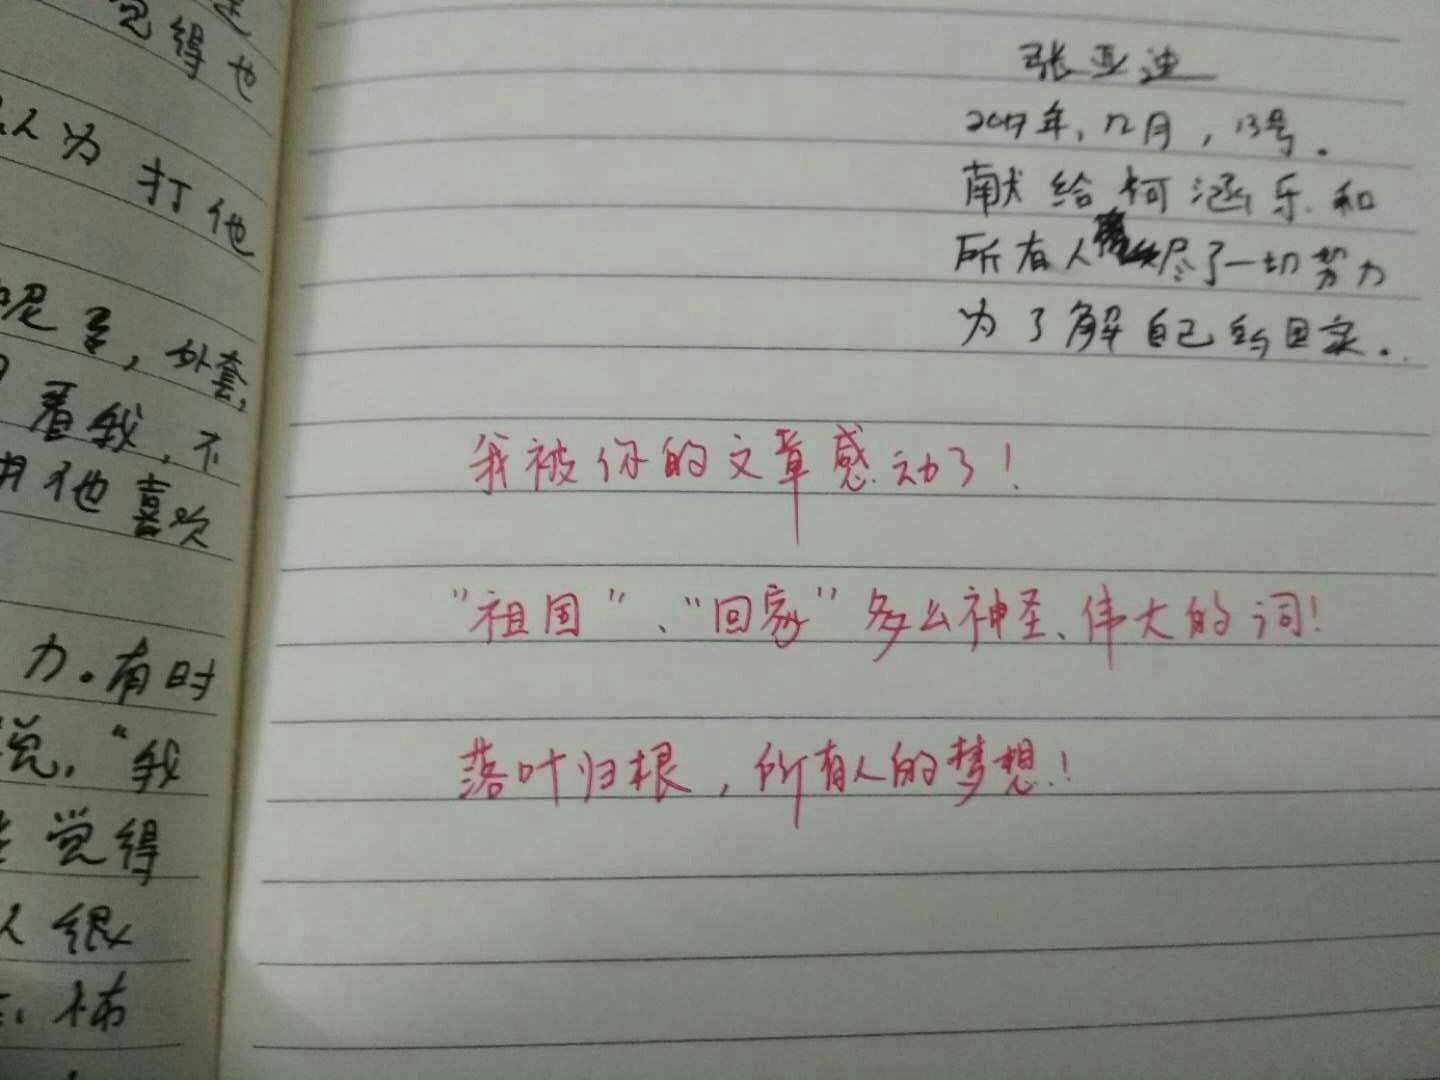 觉得也
以为打他
呢子,外套,
看我,不
他喜欢
力。有时
说,“我
觉得
人很
怖
张亚迪
2017年,12月,13号。
献给柯涵乐和
所有人尽了一切努力
为了解自己的国家。
我被你的文章感动了!
“祖国”、“回家”多么神圣、伟大的词!
落叶归根,所有人的梦想!